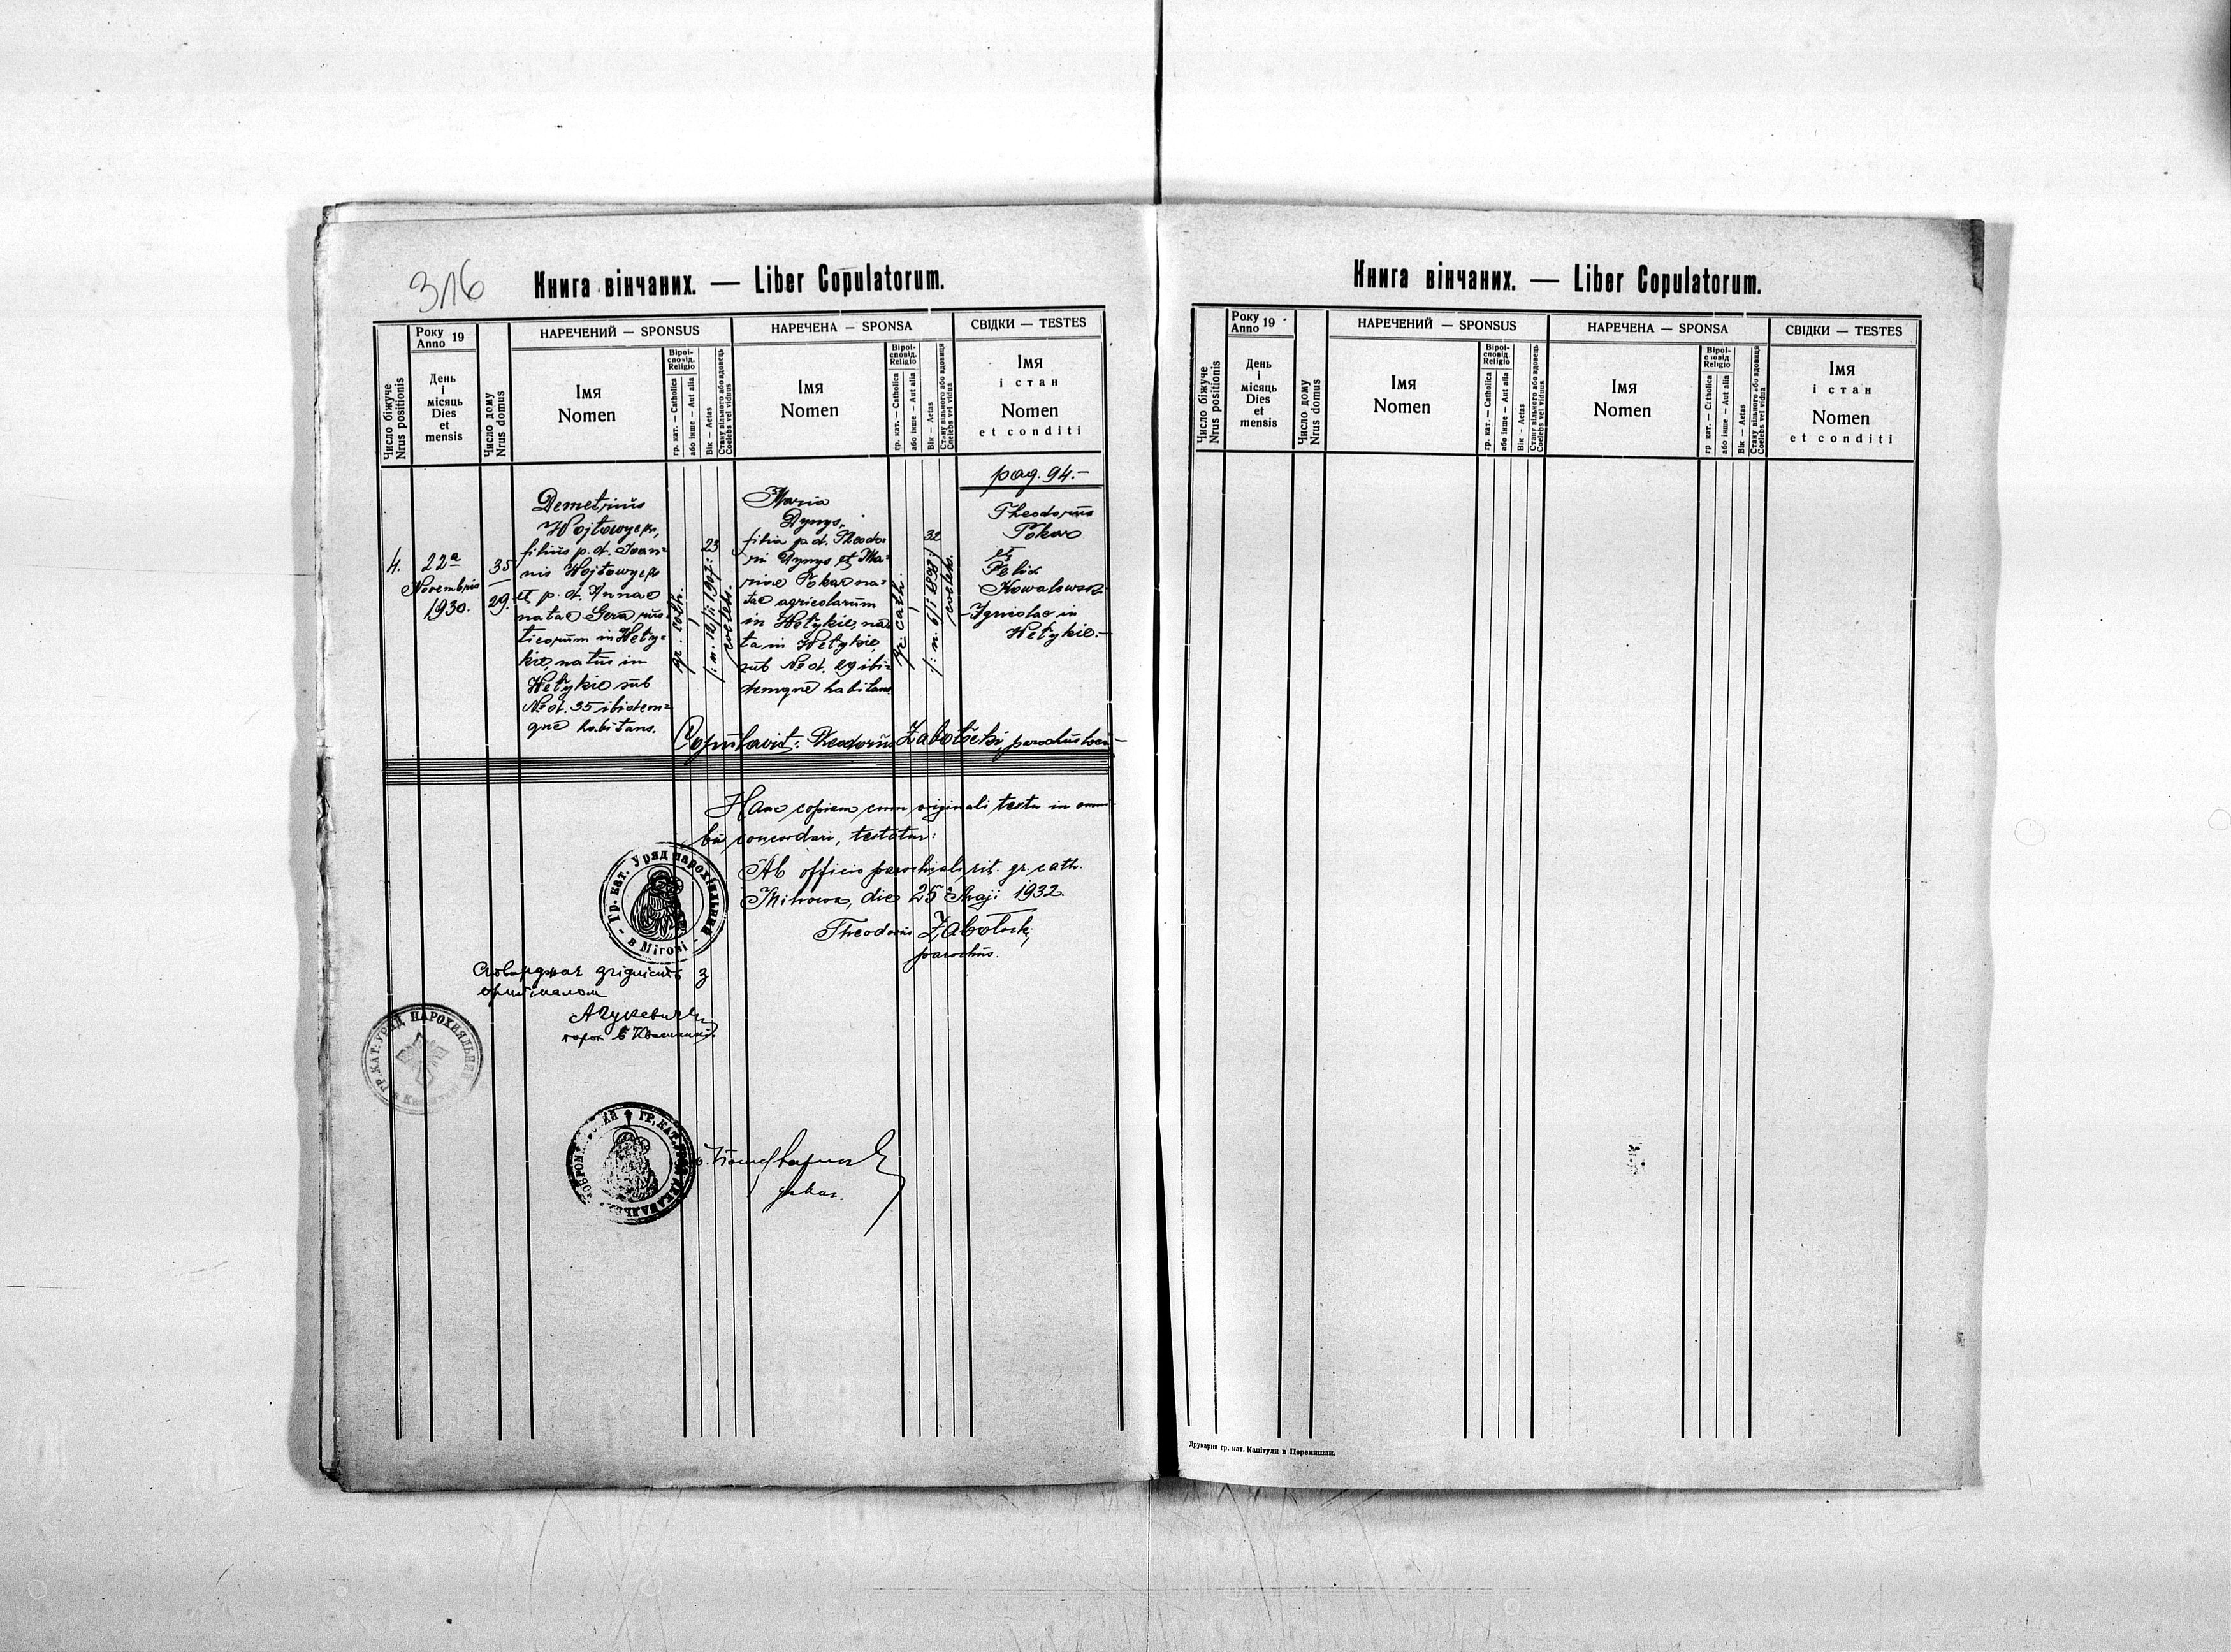 316
Книга вінчаних. — Liber Copulatorum.
Число біжуче
Nrus positionis
Року
Anno 19
День
і
місяць
Dies
et
mensis
Число дому
Nrus domus
НАРЕЧЕНИЙ — SPONSUS
Імя
Nomen
Віроі-
сповід.
Religio
гр. кат. — Catholica
або інше — Aut alia
Вік — Aetas
Стану вільного або вдовець
Coelebs vel viduus
НАРЕЧЕНА — SPONSA
Імя
Nomen
Віроі-
сповід.
Religio
гр. кат. — Catholica
або інше — Aut alia
Вік — Aetas
Стану вільного або вдовиця
Coelebs vel vidua
СВІДКИ — TESTES
Імя
і стан
Nomen
et conditi
pag. 94.-
4.
22ª
Novembris
1930.
35
29.
Demetrius
Wojtowycz,
filius p.d. Joan=
nis Wojtowycz
et p.d. Annae
natae Gera rus=
ticorum in
natus in
sub
No d. 35 ibidem=
que habitans.
gr. cath.
23
/: n. 1907:
coelebs.
Maria
Dynys,
filia p.d. Theodo
ri Dynys et Ma=
riae Tokar na=
tae agricolarum
in na=
ta in
sub No d. 29 ibi=
demque habitans
gr. cath.
32
/: n. 6/I 1898:/
coelebs.
Theodorus
Tokar
et
Felix
Kowalowski
in
Copulavit: Theodorus Zabołocki, parochus loci
Hanc copiam cum originali textu in omni
bus concordari, testatur:
Ab officio parochiali rit. gr. cath.
die 25 Maji 1932
Theodorus Zabołocki,
parochus.
Гр. кат. Уряд парохіяльний в Мігові
Стверджая згідність з
оригіналом
парох в
ГР. КАТ. УРЯД ПАРОХИЯЛЬНИЙ
ГР. КАТ.
декан.
Книга вінчаних. — Liber Copulatorum.
Число біжуче
Nrus positionis
Року
Anno 19
День
і
місяць
Dies
et
mensis
Число дому
Nrus domus
НАРЕЧЕНИЙ — SPONSUS
Імя
Nomen
Віроі-
сповід.
Religio
гр. кат. — Catholica
або інше — Aut alia
Вік - Aetas
Стану вільного або вдовець
Coelebs vel viduus
НАРЕЧЕНА — SPONSA
Імя
Nomen
Віроі-
сповід.
Religio
гр. кат. — Catholica
або інше — Aut alia
Вік — Aetas
Стану вільного або вдовиця
Coelebs vel vidua
СВІДКИ — TESTES
Імя
і стан
Nomen
et conditi
Друкарня гр. кат. Капітули в Перемишли.